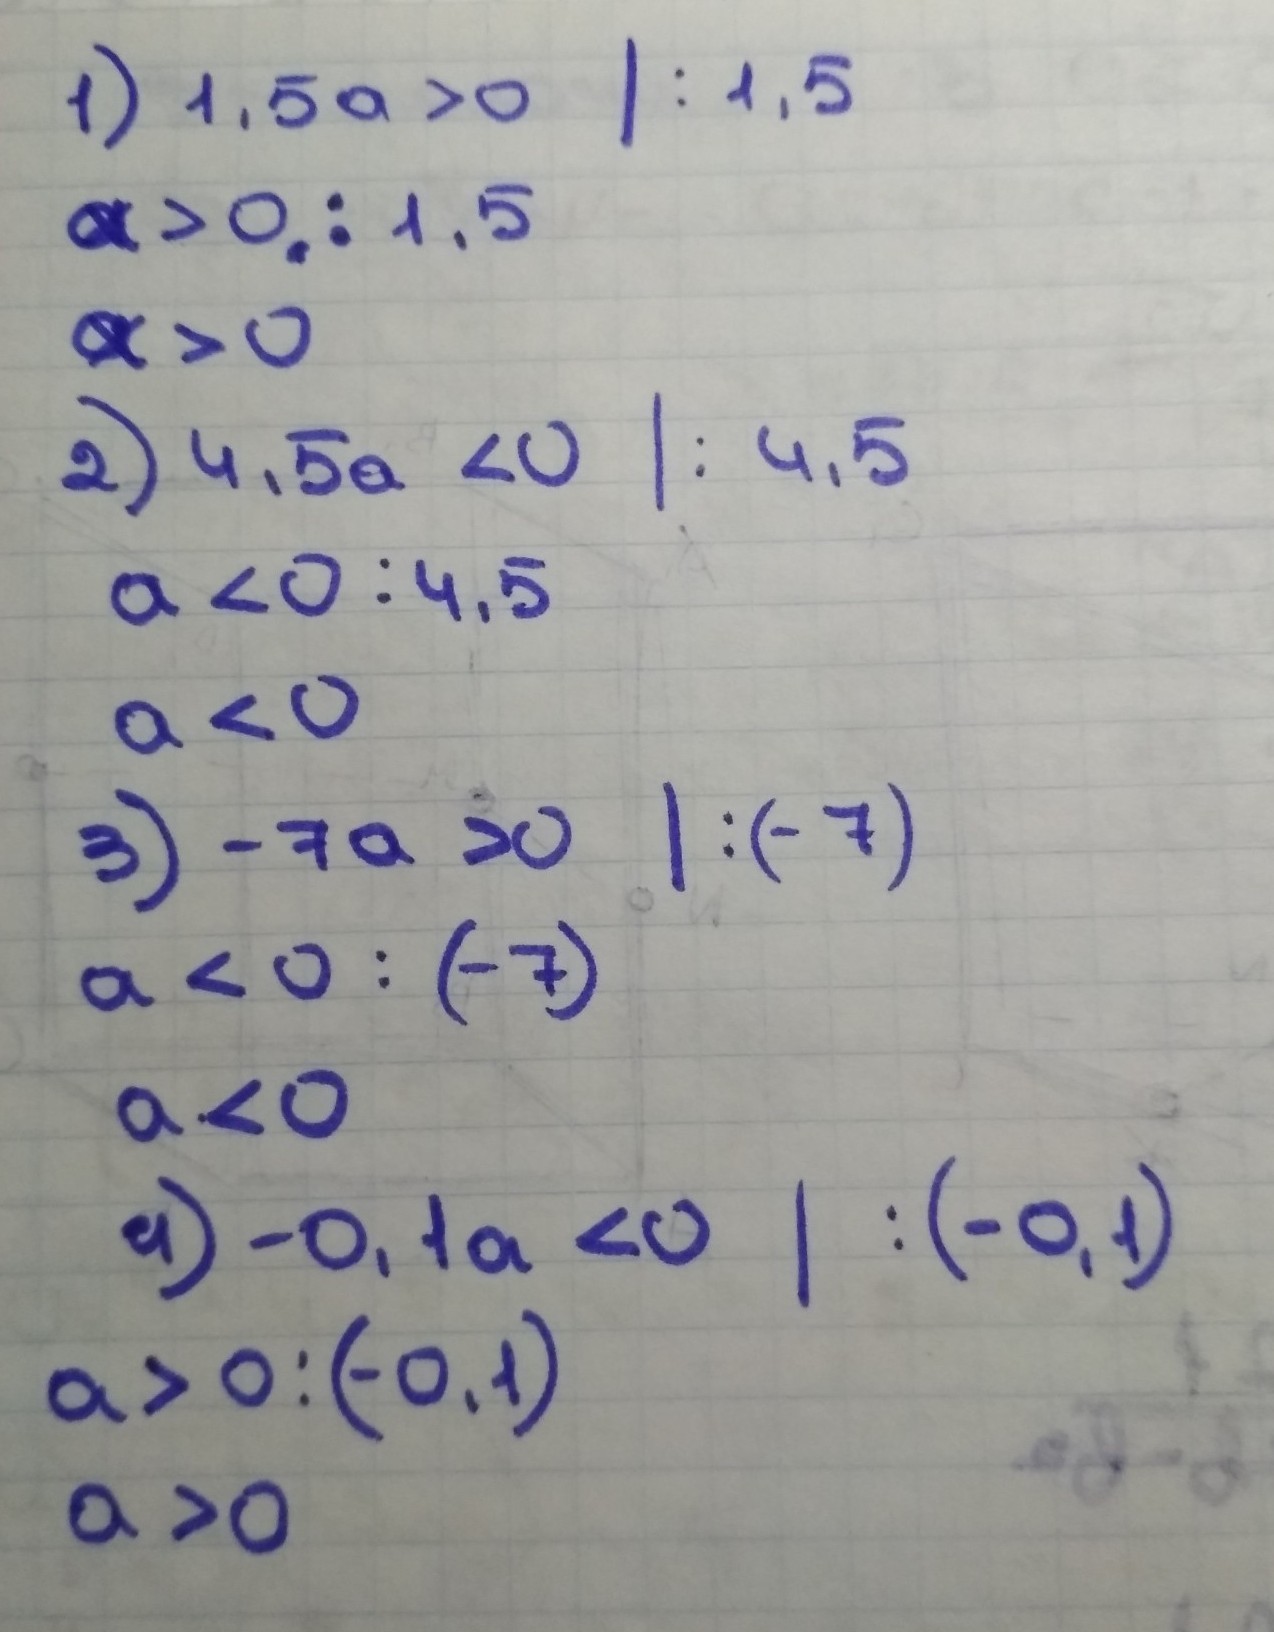 1) 1,5a >0 | : 1,5
a > 0 : 1,5
a > 0
2) 4,5a <0 | : 4,5
a < 0 : 4,5
a < 0
3) -7a >0 | :(-7)
a < 0 : (-7)
a < 0
4) -0,1a <0 | :(-0,1)
a > 0:(-0,1)
a > 0